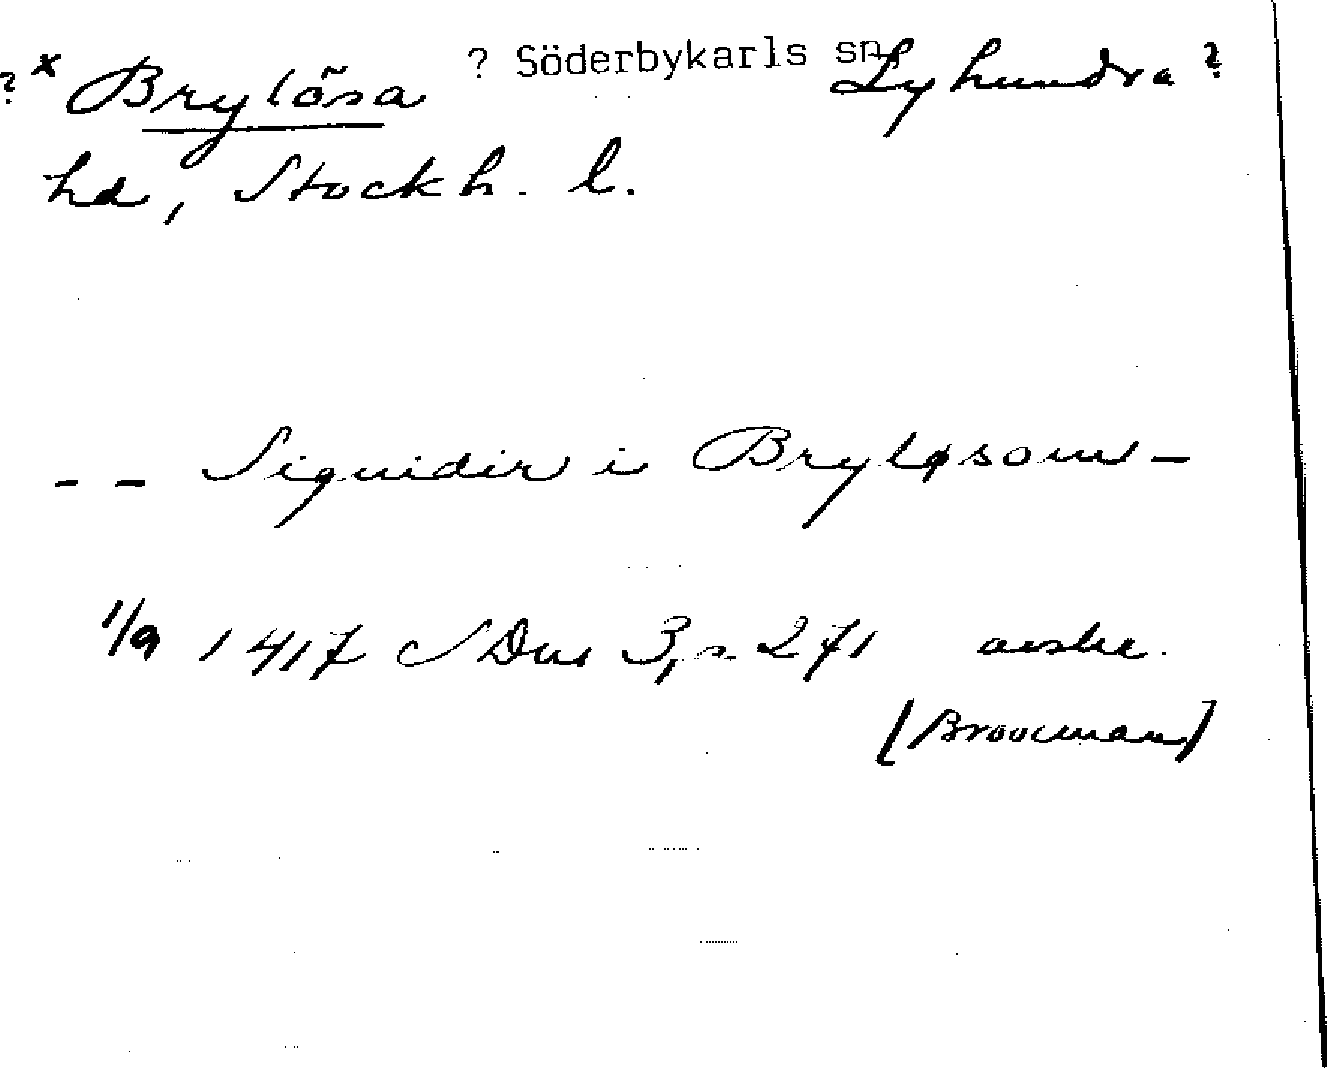 ?ˣ Brylösa ? Söderbykarls sn, Lyhundra ?
hd, Stockh. l.
- - Siguidir i Bryløsom -
1/9 1417 SDns 3, s 271 avskr.
(Brooman)